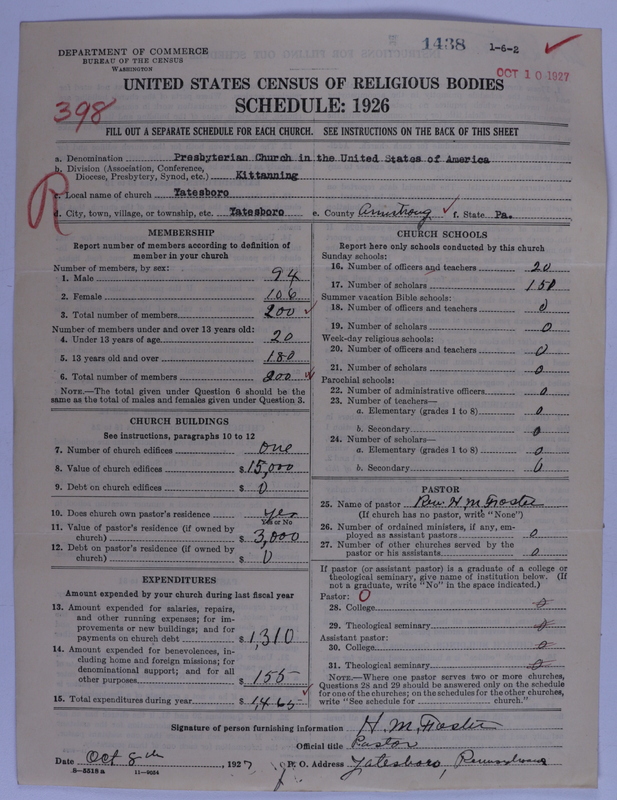 1438 1-6-2
DEPARTMENT OF COMMERCE
BUREAU OF THE CENSUS
WASHINGTON
OCT 10 1927
UNITED STATES CENSUS OF RELIGIOUS BODIES
SCHEDULE: 1926
398
FILL OUT A SEPARATE SCHEDULE FOR EACH CHURCH. SEE INSTRUCTIONS ON THE BACK OF THIS SHEET
a. Denomination Presbyterian Church in the United States of America
b. Division (Association, Conference,
Diocese, Presbytery, Synod, etc.) Kittanning
R
c. Local name of church Yatesboro
d. City, town, village, or township, etc. Yatesboro e. County Armstrong f. State Pa.
MEMBERSHIP
Report number of members according to definition of
member in your church
Number of members, by sex:
1. Male 94
2. Female 106
3. Total number of members 200
Number of members under and over 13 years old:
4. Under 13 years of age 20
5. 13 years old and over 180
6. Total number of members 200
NOTE.—The total given under Question 6 should be the
same as the total of males and females given under Question 3.
CHURCH BUILDINGS
See instructions, paragraphs 10 to 12
7. Number of church edifices one
8. Value of church edifices $ 15,000
9. Debt on church edifices $ 0
10. Does church own pastor's residence yes
Yes or No
11. Value of pastor's residence (if owned by
church) $ 3,000
12. Debt on pastor's residence (if owned by
church) $ 0
EXPENDITURES
Amount expended by your church during last fiscal year
13. Amount expended for salaries, repairs,
and other running expenses; for im-
provements or new buildings; and for
payments on church debt $ 1,310
14. Amount expended for benevolences, in-
cluding home and foreign missions; for
denominational support; and for all
other purposes $ 155
15. Total expenditures during year $ 1465
CHURCH SCHOOLS
Report here only schools conducted by this church
Sunday schools:
16. Number of officers and teachers 20
17. Number of scholars 150
Summer vacation Bible schools:
18. Number of officers and teachers 0
19. Number of scholars 0
Week-day religious schools:
20. Number of officers and teachers 0
21. Number of scholars 0
Parochial schools:
22. Number of administrative officers 0
23. Number of teachers—
a. Elementary (grades 1 to 8) 0
b. Secondary 0
24. Number of scholars—
a. Elementary (grades 1 to 8) 0
b. Secondary 0
PASTOR
25. Name of pastor Rev. H. M. Foster
(If church has no pastor, write "None")
26. Number of ordained ministers, if any, em-
ployed as assistant pastors 0
27. Number of other churches served by the
pastor or his assistants 0
If pastor (or assistant pastor) is a graduate of a college or
theological seminary, give name of institution below. (If
not a graduate, write "No" in the space indicated.)
Pastor: 0
28. College 0
29. Theological seminary 0
Assistant pastor:
30. College 0
31. Theological seminary 0
NOTE.—Where one pastor serves two or more churches,
Questions 28 and 29 should be answered only on the schedule
for one of the churches; on the schedules for the other churches,
write "See schedule for church."
Signature of person furnishing information H. M. Foster
Official title Pastor
Date Oct 8th, 1927 P. O. Address Yatesboro, Pennsylvania
8-5518a 11-9054